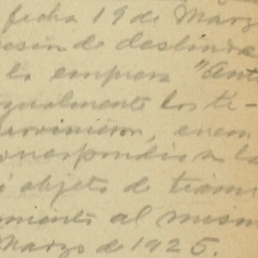 fecha 19 de Marz
de deslinde
la empresa "Ant
igualmente los te-
ervinieron, encon
orrespondia a la
objeto de trámi
amiento al mism
Marzo de 1925.